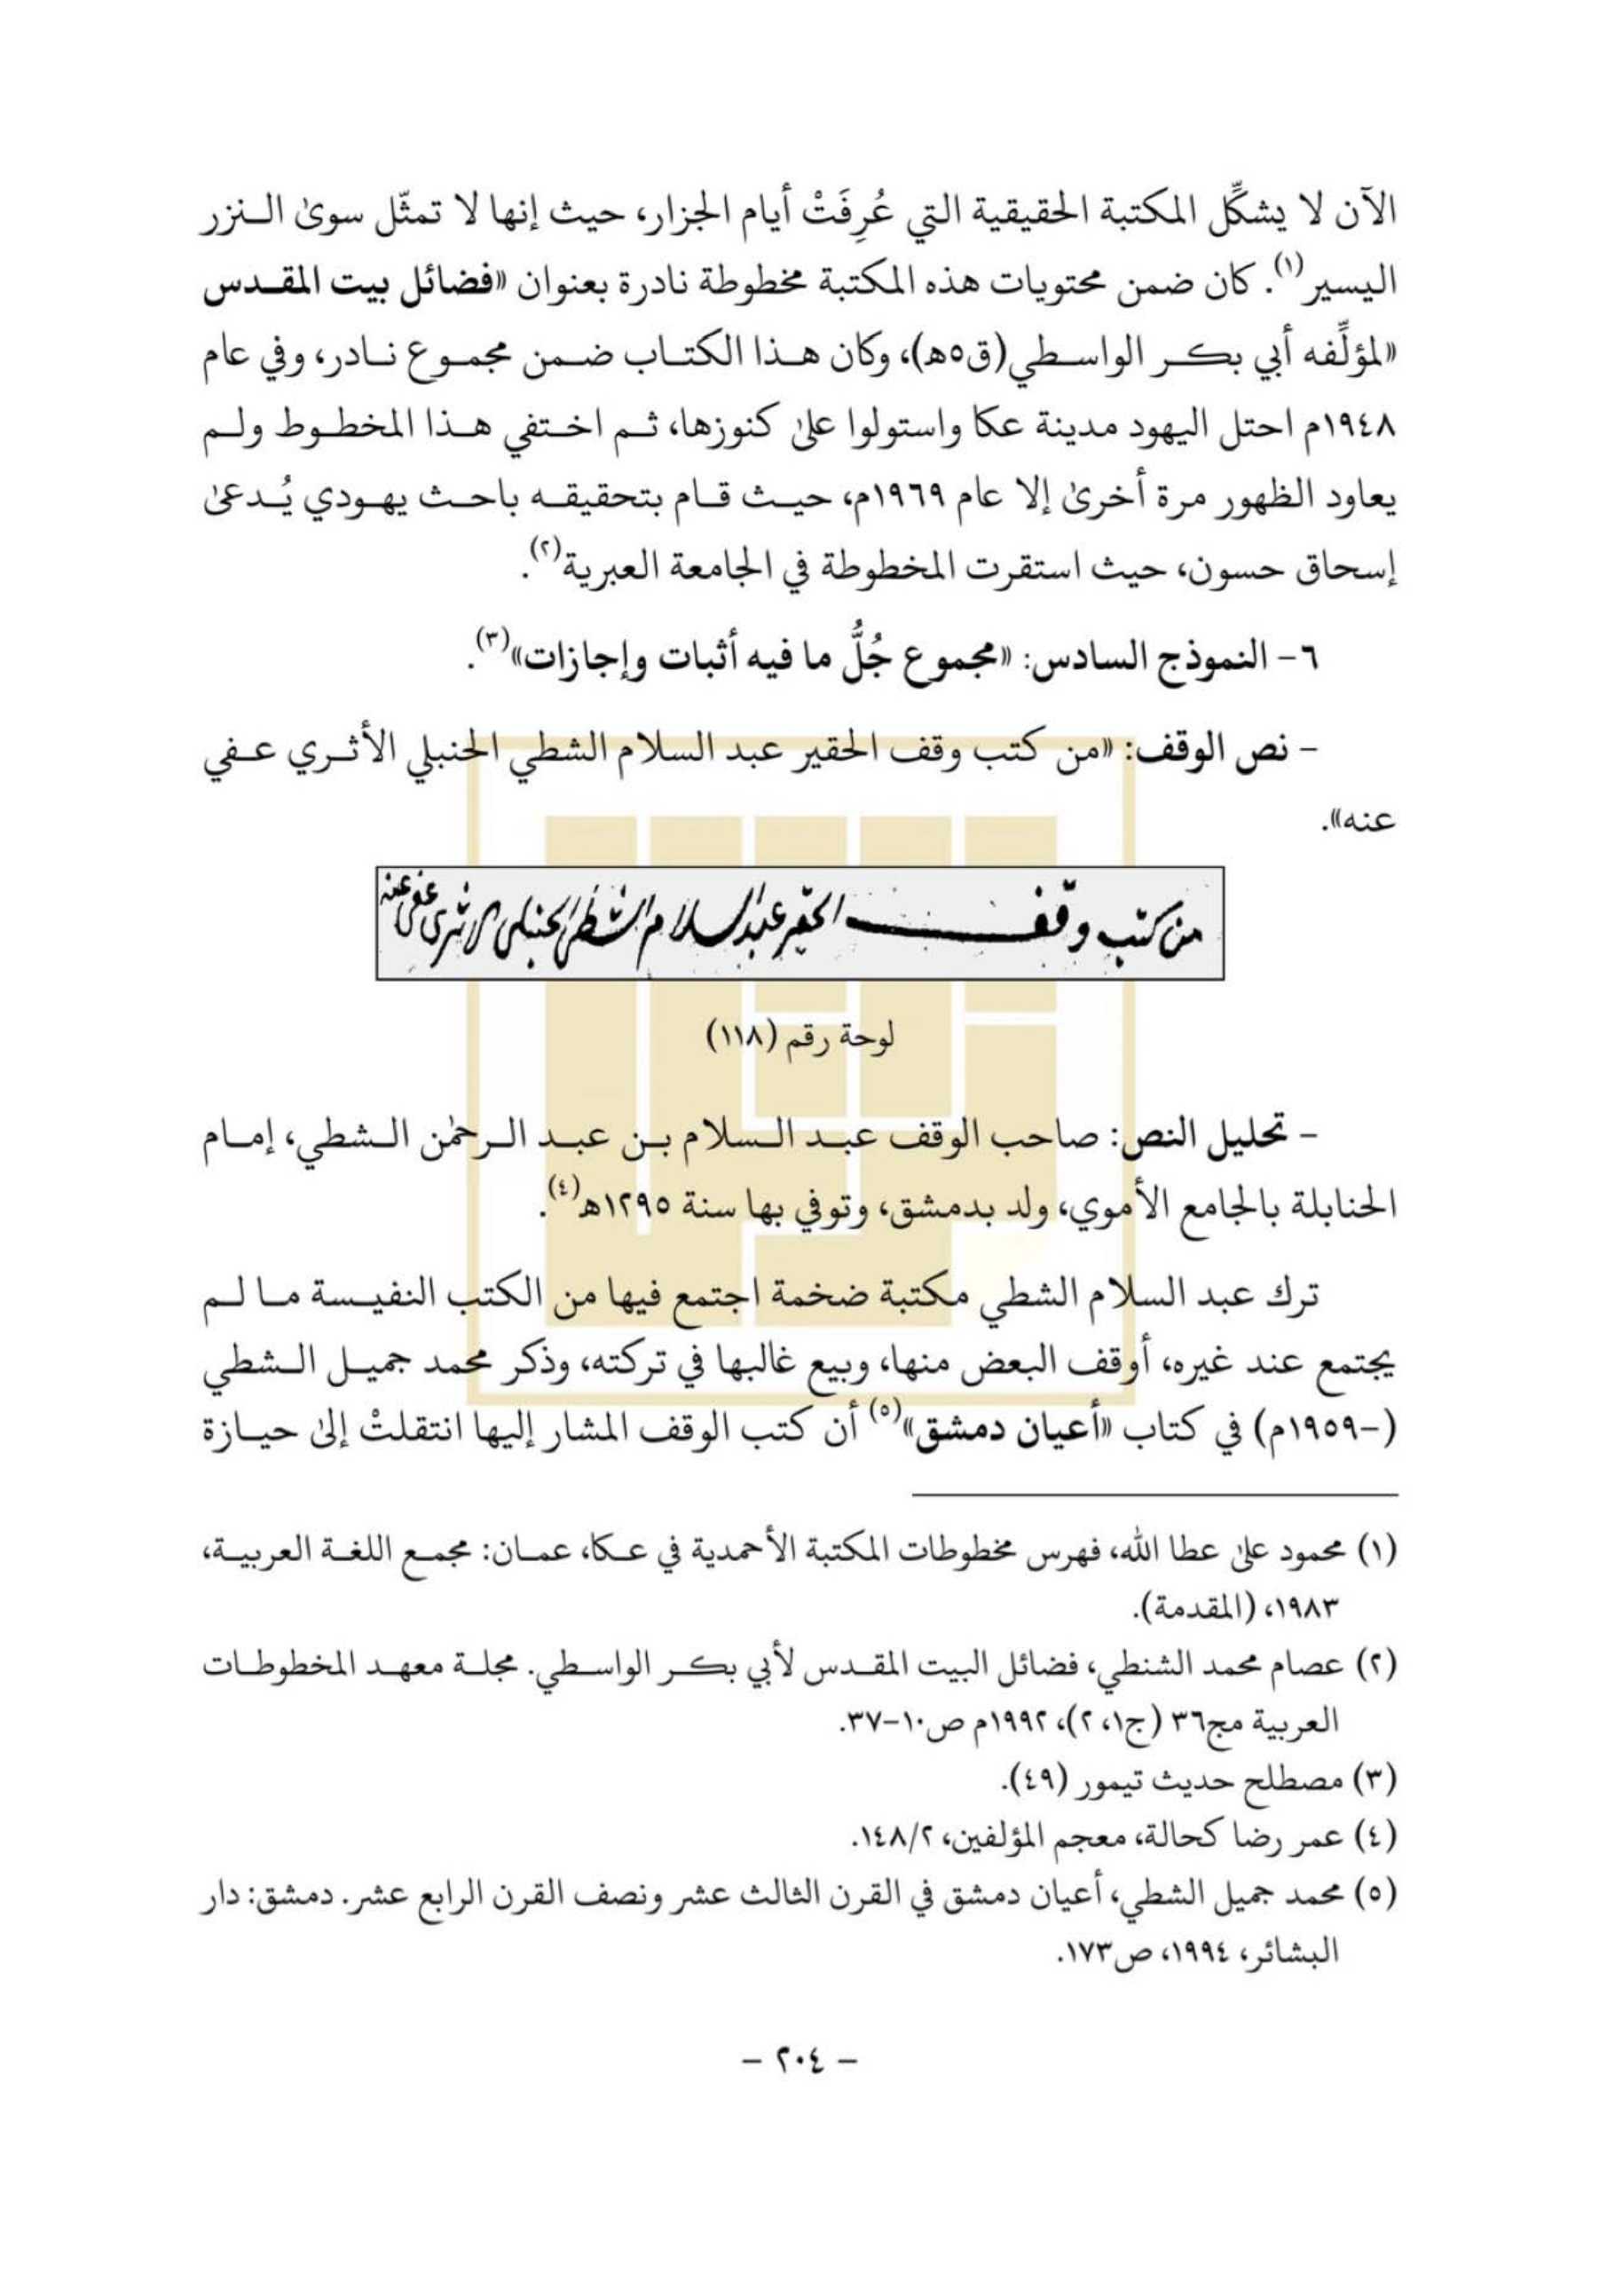 الآن لا يشكِّل المكتبة الحقيقية التي عُرِفَتْ أيام الجزار، حيث إنها لا تمثّل سوىٰ النزر
اليسير(١). كان ضمن محتويات هذه المكتبة مخطوطة نادرة بعنوان «فضائل بيت المقدس
«لمؤلِّفه أبي بكر الواسطي (ق٥هـ)، وكان هذا الكتاب ضمن مجموع نادر، وفي عام
١٩٤٨م احتل اليهود مدينة عكا واستولوا علىٰ كنوزها، ثم اختفي هذا المخطوط ولم
يعاود الظهور مرة أخرىٰ إلا عام ١٩٦٩م، حيث قام بتحقيقه باحث يهودي يُدعىٰ
إسحاق حسون، حيث استقرت المخطوطة في الجامعة العبرية(٢).
٦- النموذج السادس: «مجموع جُلُّ ما فيه أثبات وإجازات»(٣).
- نص الوقف: «من كتب وقف الحقير عبد السلام الشطي الحنبلي الأثري عفي
عنه».
من كتب وقف الحقير عبد السلام الشطي الحنبلي الاثري عفى عنه
لوحة رقم (١١٨)
- تحليل النص: صاحب الوقف عبد السلام بن عبد الرحمٰن الشطي، إمام
الحنابلة بالجامع الأموي، ولد بدمشق، وتوفي بها سنة ١٢٩٥هـ(٤).
ترك عبد السلام الشطي مكتبة ضخمة اجتمع فيها من الكتب النفيسة ما لم
يجتمع عند غيره، أوقف البعض منها، وبيع غالبها في تركته، وذكر محمد جميل الشطي
(-١٩٥٩م) في كتاب «أعيان دمشق»(٥) أن كتب الوقف المشار إليها انتقلتْ إلىٰ حيازة
(١) محمود علىٰ عطا الله، فهرس مخطوطات المكتبة الأحمدية في عكا، عمان: مجمع اللغة العربية،
١٩٨٣، (المقدمة).
(٢) عصام محمد الشنطي، فضائل البيت المقدس لأبي بكر الواسطي. مجلة معهد المخطوطات
العربية مج٣٦ (ج١، ٢)، ١٩٩٢م ص١٠-٣٧.
(٣) مصطلح حديث تيمور (٤٩).
(٤) عمر رضا كحالة، معجم المؤلفين، ١٤٨/٢.
(٥) محمد جميل الشطي، أعيان دمشق في القرن الثالث عشر ونصف القرن الرابع عشر. دمشق: دار
البشائر، ١٩٩٤، ص١٧٣.
- ٢٠٤ -